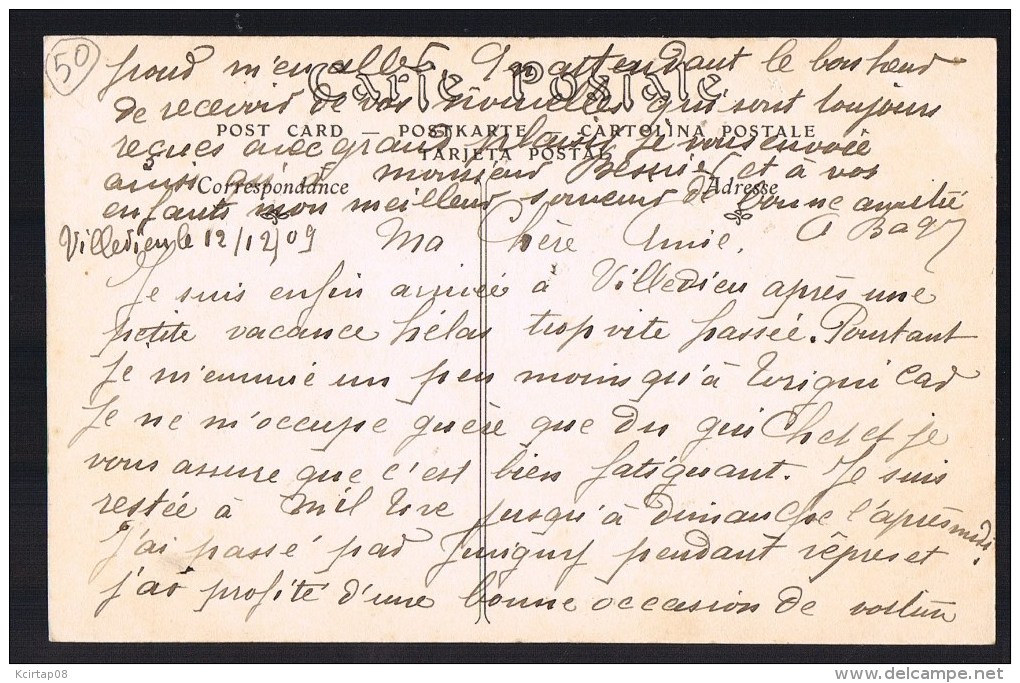 50
pour m'en aller. En attendant le bonheur
de recevoir de vos nouvelles qui sont toujours
reçues avec grand plaisir je vous envoie
ainsi qu'à monsieur Besnier et à vos
enfants mon meilleur souvenir de bonne amitié
Carte Postale
POST CARD — POSTKARTE — CARTOLINA POSTALE
TARJETA POSTAL
Correspondance
Adresse
Villedieu le 12/12/09 Ma Chère Amie, A Bag
Je suis enfin arrivée à Villedieu après une
petite vacance hélas trop vite passée. Pourtant
Je m'ennuie un peu moins qu'à Torigni car
Je ne m'occupe guère que du guichet et je
vous assure que c'est bien fatiguant. Je suis
restée à jusqu'à dimanche l'après midi.
J'ai passé par Juvigny pendant vêpres et
j'ai profité d'une bonne occasion de voiture
Kcirtap08
delcampe.net